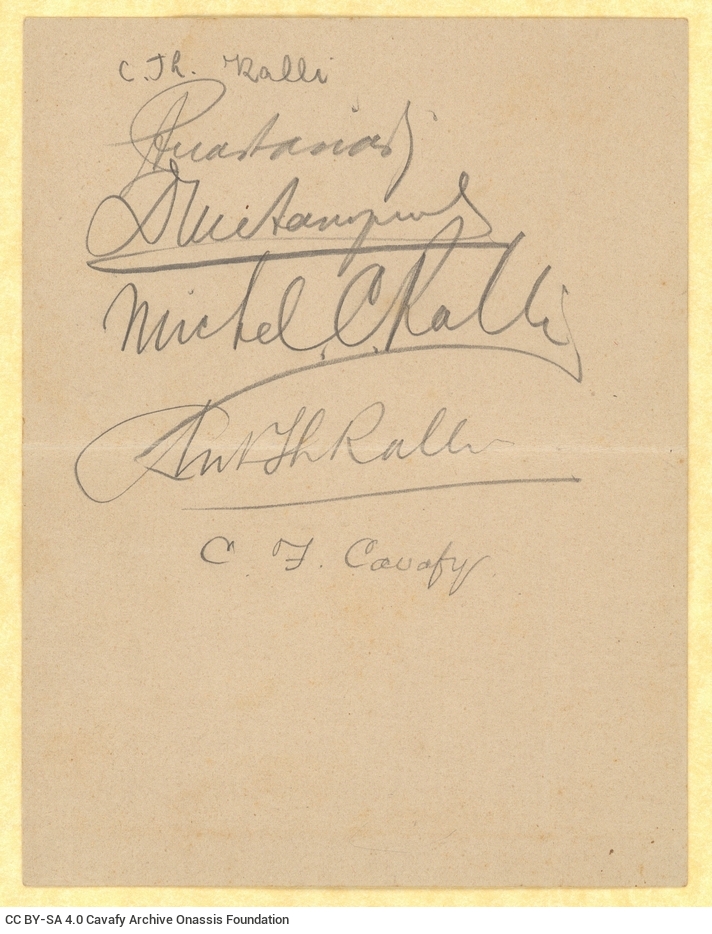 C. Th. Ralli
Michel. C. Ralli
Ant Th Ralli
C F. Cavafy
CC BY-SA 4.0 Cavafy Archive Onassis Foundation